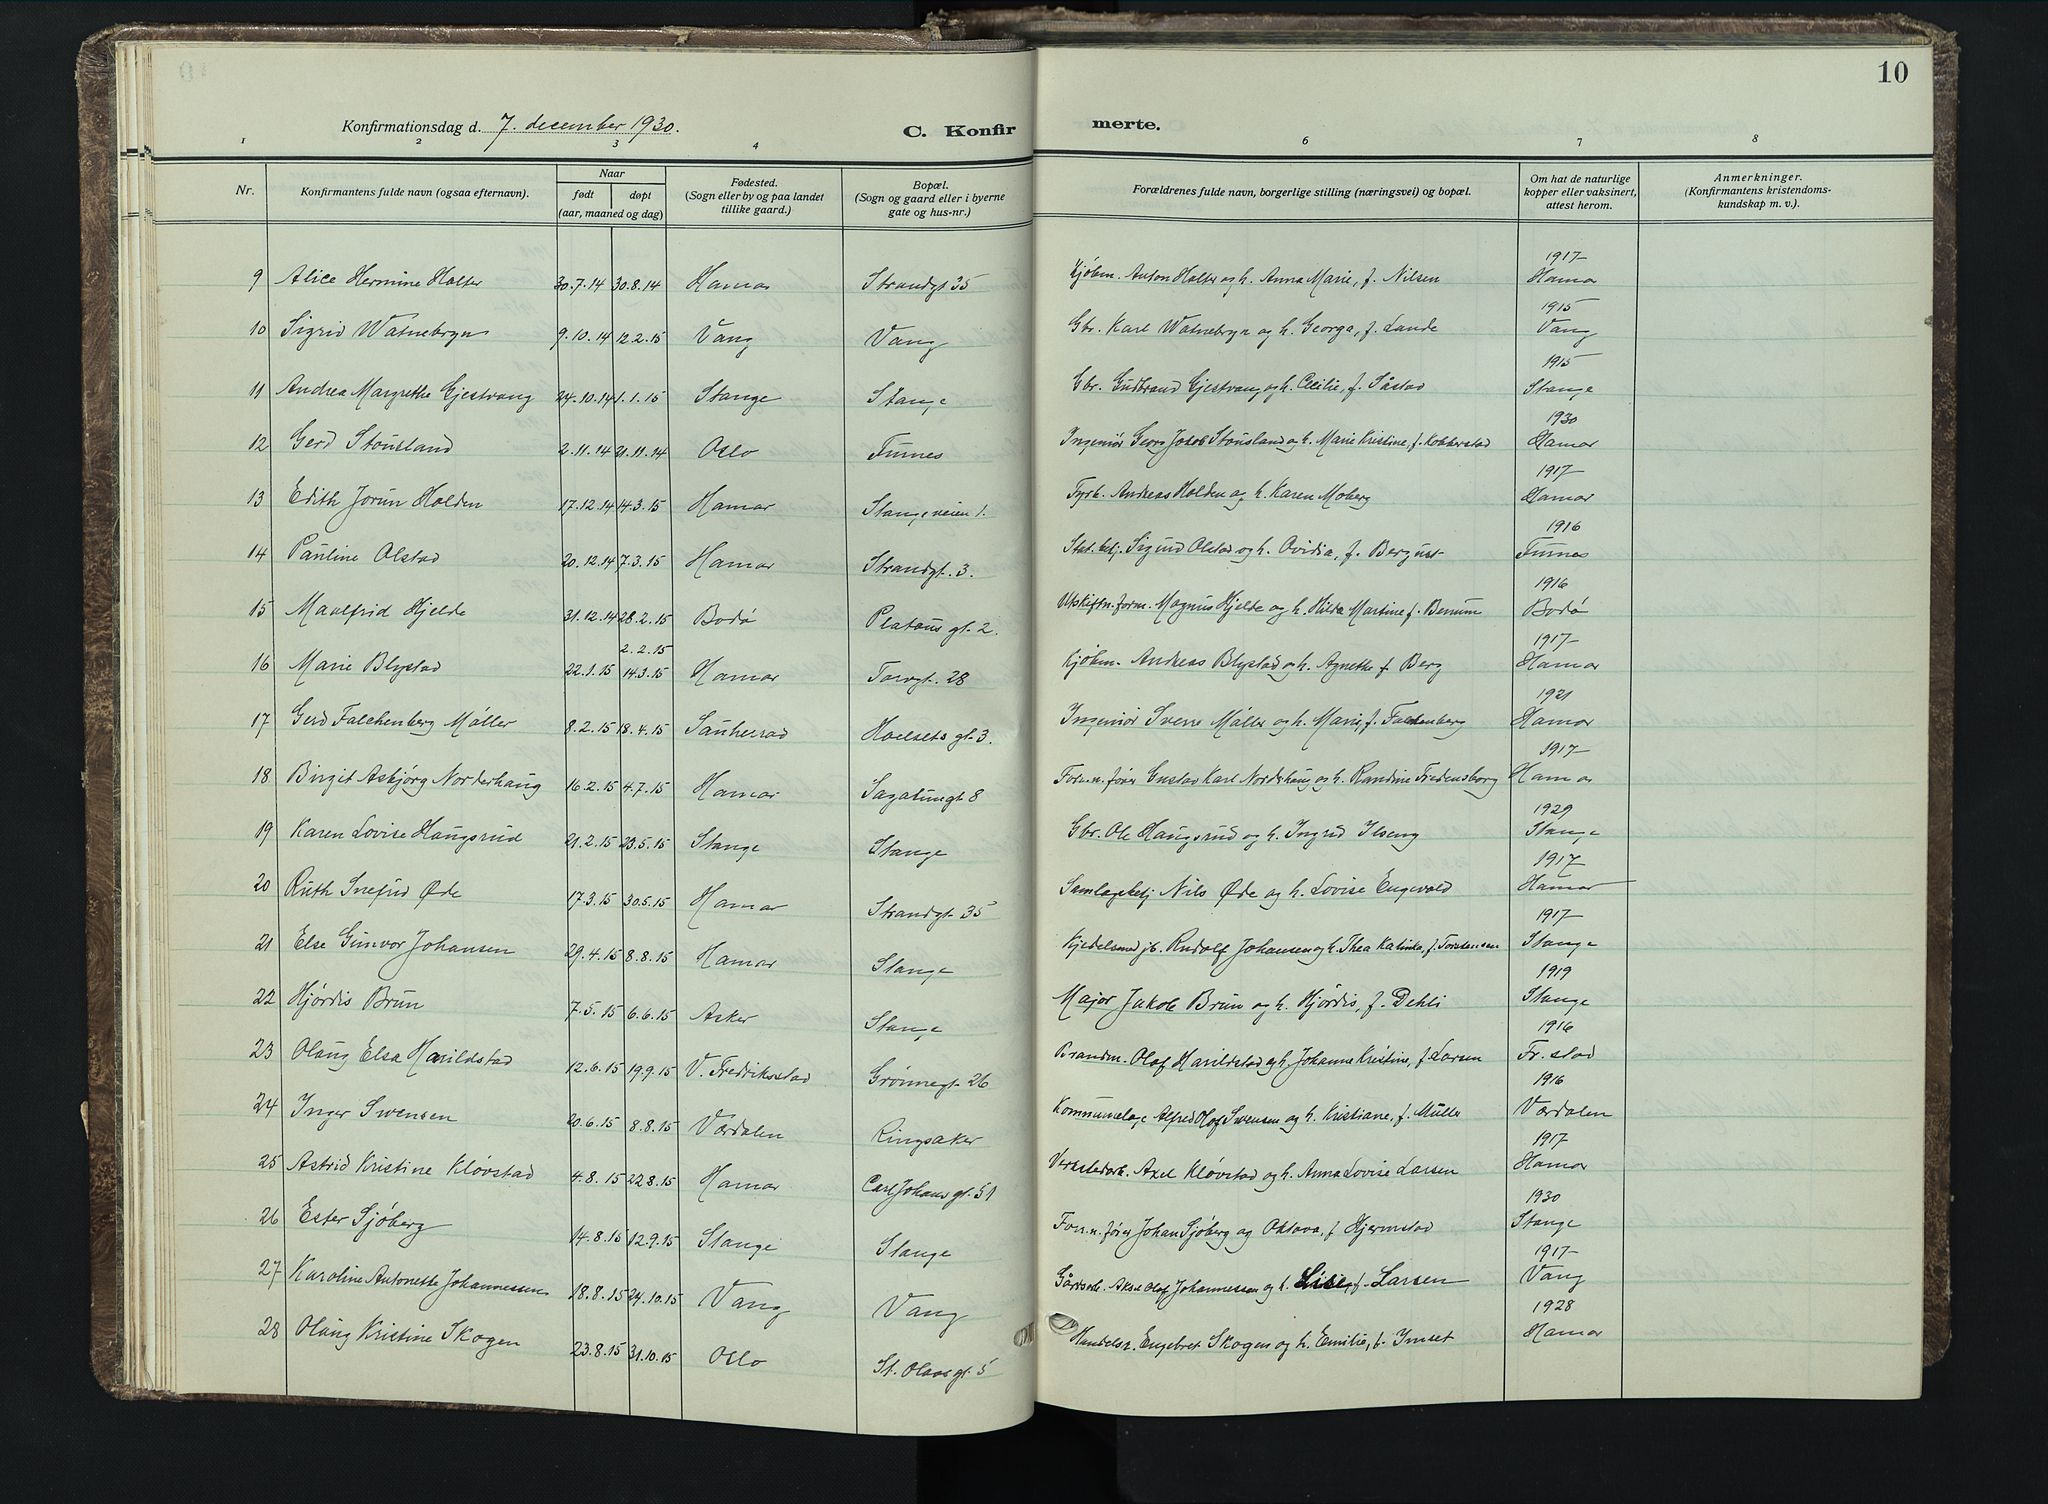 10
Konfirmationsdag d. 7. december 1930. C. Konfirmerte.
1 2 3 4 6 7 8
Nr. Konfirmantens fulde navn (ogsaa efternavn). Naar født døpt (aar, maaned og dag) Fødested. (Sogn eller by og paa landet tillike gaard.) Bopæl. (Sogn og gaard eller i byerne gate og hus-nr.) Forældrenes fulde navn, borgerlige stilling (næringsvei) og bopæl. Om hat de naturlige kopper eller vaksinert, attest herom. Anmerkninger. (Konfirmantens kristendoms-kundskap m. v.).
9 Alice Hermine Holter 30.7.14 30.8.14 Hamar Strandgt 35 Kjøbm. Anton Holter og h. Anna Marie, f. Nilsen 1917 Hamar
10 Sigrid Watnebryn 9.10.14 12.2.15 Vang Vang Gbr. Karl Watnebryn og h. Georga, f. Lande 1915 Vang
11 Andrea Margrethe Gjestvang 24.10.14 1.1.15 Stange Stange Gbr. Gudbrand Gjestvang og h. Cecilie, f. Såstad 1915 Stange
12 Gerd Stousland 2.11.14 21.11.14 Oslo Furnes Ingeniør Georg Jakob Stousland og h. Marie Kristine, f. Kobberstad 1930 Hamar
13 Edith Jorun Holden 17.12.14 14.3.15 Hamar Stangeveien 1. Fyrb. Andreas Holden og h. Karen Moberg 1917 Hamar
14 Pauline Olstad 20.12.14 7.3.15 Hamar Strandgt. 3. Stat.betj. Sigurd Olstad og h. Ovidia, f. Bergust 1916 Furnes
15 Maalfrid Hjelde 31.12.14 28.2.15 Bodø Platous gt. 2. Utskiftn.form. Magnus Hjelde og h. Hilda Martine f. Benum 1916 Bodø
16 Marie Blystad 22.1.15 2.2.15 14.3.15 Hamar Torvgt. 28 Kjøbm. Andreas Blystad og h. Agnethe f. Berg 1917 Hamar
17 Gerd Falchenberg Møller 8.2.15 18.4.15 Sauherad Hoelsets gt. 3. Ingeniør Sverre Møller og h. Marie, f. Falchenberg 1921 Hamar
18 Birgit Asbjørg Norderhaug 16.2.15 4.7.15 Hamar Sagatungt 8 Forr.n.fører Gustav Karl Norderhaug og h. Randine Fredensborg 1917 Hamar
19 Karen Lovise Haugsrud 21.2.15 23.5.15 Stange Stange Gbr. Ole Haugsrud og h. Ingrid Ilseng 1929 Stange
20 Ruth Snefrid Øde 17.3.15 30.5.15 Hamar Strandgt. 35 Samlagsbetj Nils Øde og h. Lovise Engvold 1917 Hamar
21 Else Gunvor Johansen 29.4.15 8.8.15 Hamar Stange Kjedelsmed jb. Rudolf Johansen og h. Thea Katinka, f. Torstensen 1917 Stange
22 Hjørdis Brun 7.5.15 6.6.15 Asker Stange Major Jakob Brun og h. Hjørdis, f. Dehli 1919 Stange
23 Olaug Elsa Harildstad 12.6.15 19.9.15 V. Fredriksstad Grønnegt. 26 Brandm. Olaf Harildstad og h. Johanne Kristine, f. Larsen 1916 Fr.stad
24 Inger Swensen 20.6.15 8.8.15 Værdalen Ringsaker Kommunelæge Alfred Hof Swensen og h. Kristiane, f. Müller 1916 Værdalen
25 Astrid Kristine Kløvstad 4.8.15 22.8.15 Hamar Carl Johans gt. 51 Verkstedarb. Axel Kløvstad og h. Anna Lovise Larsen 1917 Hamar
26 Ester Sjøberg 14.8.15 12.9.15 Stange Stange Forr.n.fører Johan Sjøberg og Oktava, f Hjermstad 1930 Stange
27 Karoline Antonette Johannessen 18.8.15 24.10.15 Vang Vang Gårdsarb. Aksel Olaf Johannessen og h. Lise, f. Larsen 1917 Vang
28 Olaug Kristine Skogen 23.8.15 31.10.15 Oslo St. Olavs gt. 5 Handelsr. Engebret Skogen og h. Emilie, f. Imset 1928 Hamar